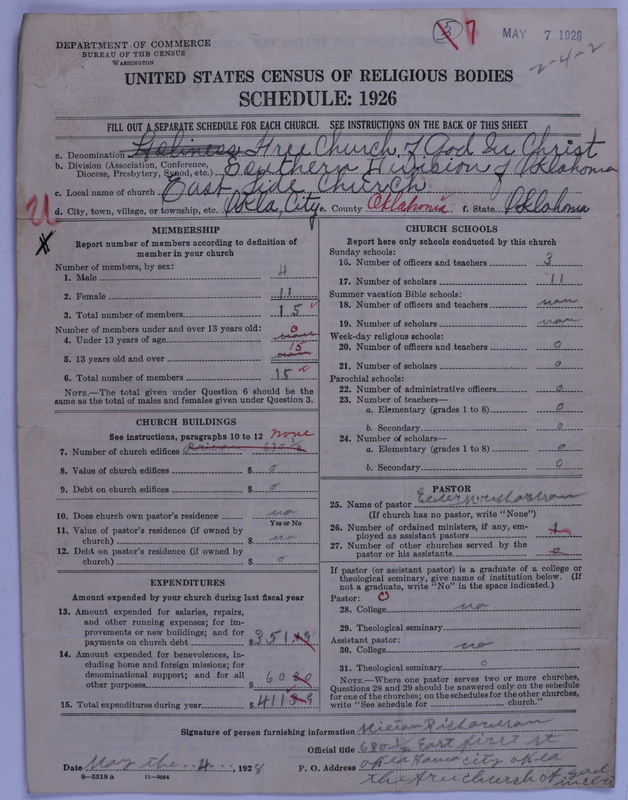 5 7
MAY 7 1928
2-4-2
DEPARTMENT OF COMMERCE
BUREAU OF THE CENSUS
WASHINGTON
UNITED STATES CENSUS OF RELIGIOUS BODIES
SCHEDULE: 1926
FILL OUT A SEPARATE SCHEDULE FOR EACH CHURCH. SEE INSTRUCTIONS ON THE BACK OF THIS SHEET
a. Denomination Holiness Free Church of God In Christ
b. Division (Association, Conference, Diocese, Presbytery, Synod, etc.) Southern Division of Oklahoma
c. Local name of church East Side Church
d. City, town, village, or township, etc. Okla. City e. County Oklahoma f. State Oklahoma
MEMBERSHIP
Report number of members according to definition of
member in your church
Number of members, by sex:
1. Male 4
2. Female 11
3. Total number of members 15
Number of members under and over 13 years old:
4. Under 13 years of age 0
5. 13 years old and over 15
6. Total number of members 15
NOTE.—The total given under Question 6 should be
same as the total of males and females given under Question 3.
CHURCH BUILDINGS
See instructions, paragraphs 10 to 12 none
7. Number of church edifices
8. Value of church edifices $ 0
9. Debt on church edifices $ 0
10. Does church own pastor's residence no
Yes or No
11. Value of pastor's residence (if owned by
church) $ no
12. Debt on pastor's residence (if owned by
church) $ 0
EXPENDITURES
Amount expended by your church during last fiscal year
13. Amount expended for salaries, repairs,
and other running expenses; for im-
provements or new buildings; and for
payments on church debt $ 351
14. Amount expended for benevolences, in-
cluding home and foreign missions; for
denominational support; and for all
other purposes $ 60
15. Total expenditures during year $ 411
CHURCH SCHOOLS
Report here only schools conducted by this church
Sunday schools:
16. Number of officers and teachers 3
17. Number of scholars 11
Summer vacation Bible schools:
18. Number of officers and teachers
19. Number of scholars
Week-day religious schools:
20. Number of officers and teachers 0
21. Number of scholars 0
Parochial schools:
22. Number of administrative officers 0
23. Number of teachers—
a. Elementary (grades 1 to 8) 0
b. Secondary 0
24. Number of scholars—
a. Elementary (grades 1 to 8) 0
b. Secondary 0
PASTOR
25. Name of pastor
(If church has no pastor, write "None")
26. Number of ordained ministers, if any, em-
ployed as assistant pastors 1
27. Number of other churches served by the
pastor or his assistants 0
If pastor (or assistant pastor) is a graduate of a college or
theological seminary, give name of institution below. (If
not a graduate, write "No" in the space indicated.)
Pastor: 0
28. College no
29. Theological seminary
Assistant pastor:
30. College no
31. Theological seminary 0
NOTE.—Where one pastor serves two or more churches,
Questions 28 and 29 should be answered only on the schedule
for one of the churches; on the schedules for the other churches,
write "See schedule for church."
Signature of person furnishing information Richardson
Official title East first st
Date May the 4, 1928 P. O. Address Oklahoma city okla
the free church of god in christ
8—5318 a 11—9084